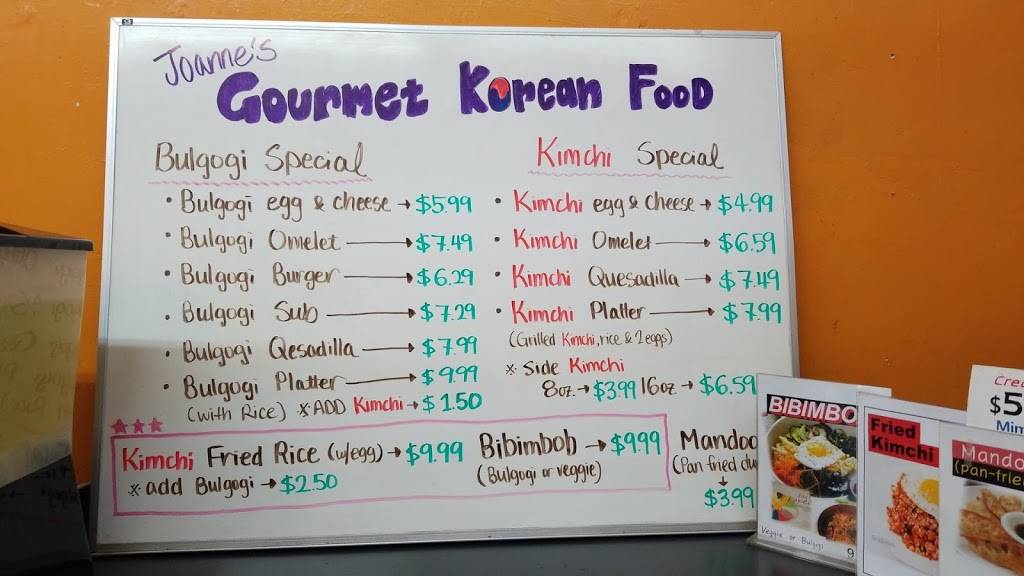 Joanne's
Gourmet Korean Food
Bulgogi Special
• Bulgogi egg & cheese → $5.99
• Bulgogi Omelet → $7.49
• Bulgogi Burger → $6.29
• Bulgogi Sub → $7.29
• Bulgogi Qesadilla → $7.99
• Bulgogi Platter → $9.99
(with Rice) * ADD Kimchi → $1.50
Kimchi Special
• Kimchi egg & cheese → $4.99
• Kimchi Omelet → $6.59
• Kimchi Quesadilla → $7.49
• Kimchi Platter → $7.99
(Grilled Kimchi, rice & 2 eggs)
* Side Kimchi
8oz → $3.99 16oz → $6.59
★★★
Kimchi Fried Rice (w/egg) → $9.99
* add Bulgogi → $2.50
Bibimbob → $9.99
(Bulgogi or veggie)
Mandoo
(Pan fried du
↓
$3.99
BIBIMBO
Veggie or Bulgogi 9
Fried
Kimchi
Mando
(pan-frie
Cre
$5
Mim